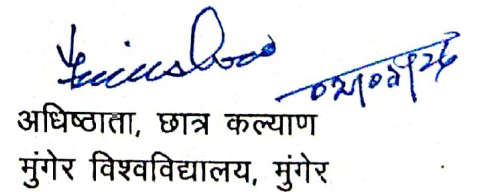 अधिष्ठाता, छात्र कल्याण
मुंगेर विश्वविद्यालय, मुंगेर